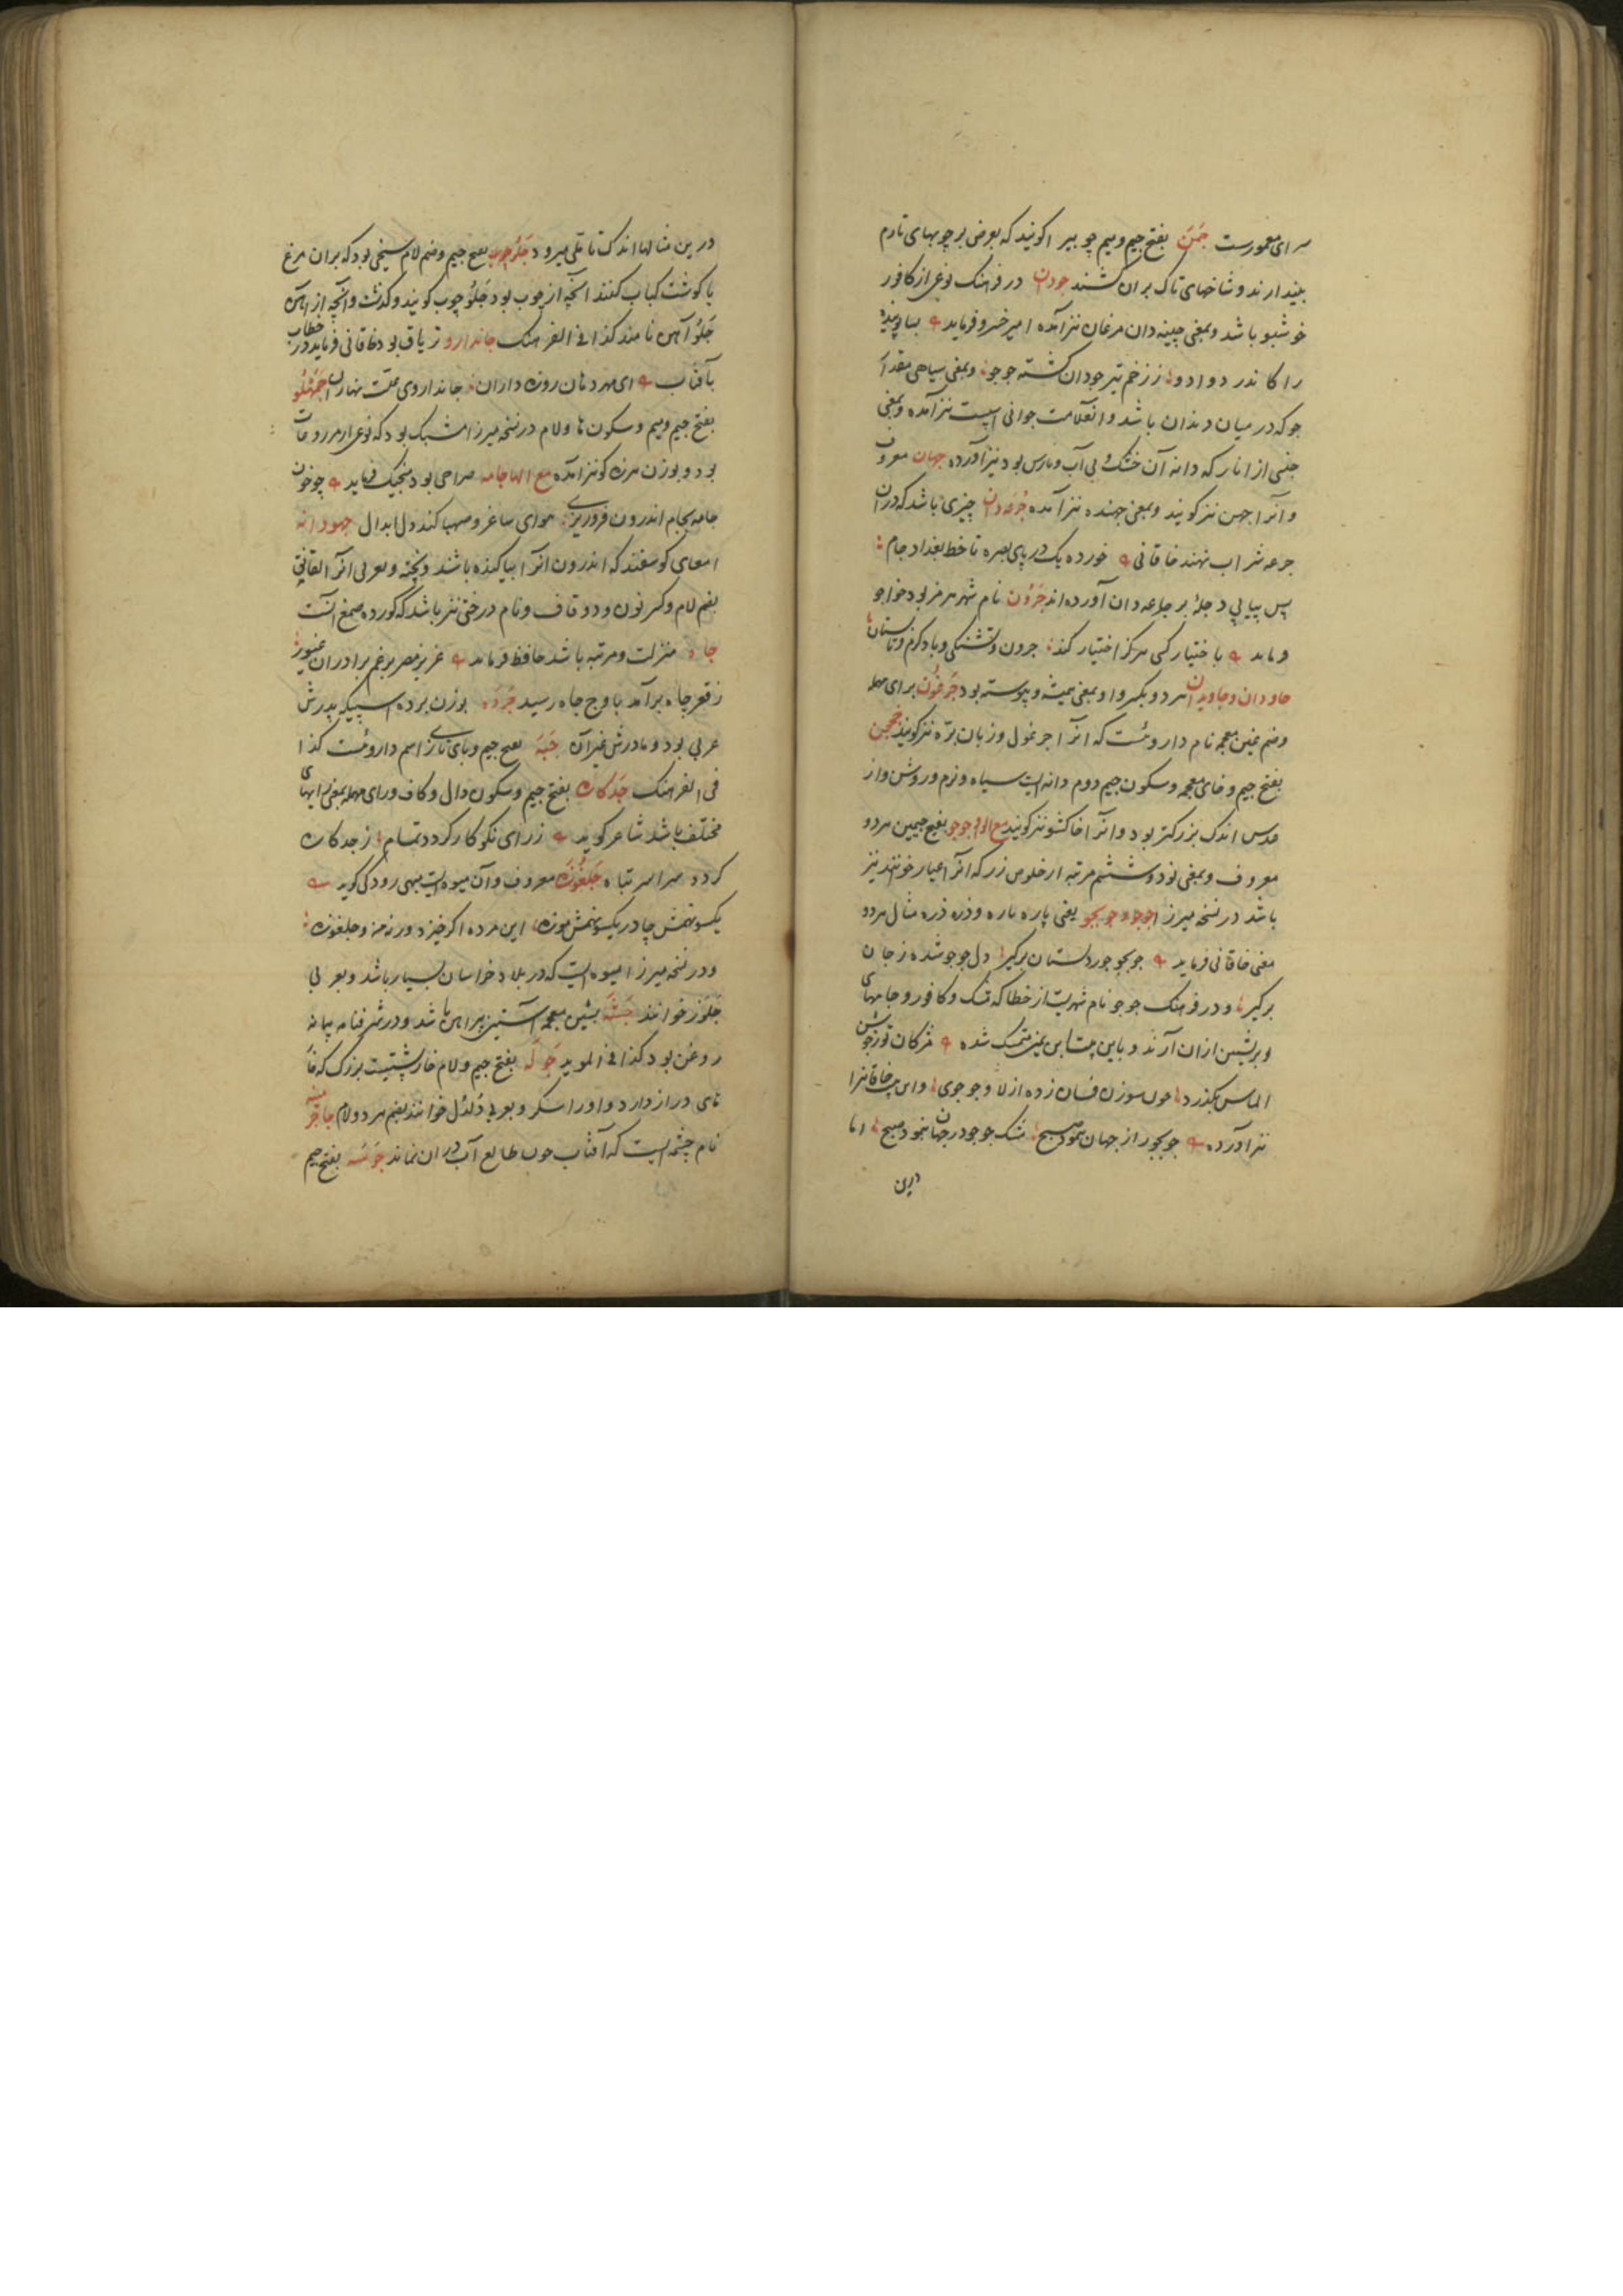 سرای معمورست جَمَن بفتح جیم و میم چوبیرا گویند که بعرض بر چوبهای تارم
بیندازند و شاخهای تاک بران کشند جودان در فرهنگ نوعی از کافور
خوشبو باشد و بمعنی چینه دان مرغان نیز آمده امیر خسرو فرماید
را کاندر دوادو ز زخم تیر جودان کشته جو جو و بمعنی سیاهی مقدار
جو که در میان دندان باشد و آن علامت جوانی اسپست نیز آمده و بمعنی
جنسی از انار که دانه آن خشک و بی آب و نارس بود نیز آورده جهان معروف
و آنرا جهن نیز گویند و بمعنی جهنده نیز آمده جُرعه دان چیزی باشد که دران
جرعه شراب نهند خاقانی خورده یک دریای بصره تا خط بغداد جام
پس پیاپی دجلهٔ بر جرعه دان آورده اند جَرُون نام شهر هرمز بود خواجو
فرماید باختیار کسی هرگز اختیار کند جرون و تشنگی و باد گرم و تابستان
جاودان و جاویدان هر دو بکسر واو بمعنی همیشه و پیوسته بود جَرغُون برای مهمله
و ضم غین معجمه نام داروئست که آنرا جرغول و زبان بره نیز گویند جخجن
بفتح جیم و خای معجمه و سکون جیم دوم دانه ایست سیاه و نرم و روشن و از
عدس اندک بزرگتر بود و آنرا خاکشو نیز گویند مع الواو جوجو بفتح جیمین هر دو
معروف و بمعنی نود و ششم مرتبه از خلوص زر که آنرا عیار خوانند نیز
باشد در نسخه میرزا جوجو و جوبجو یعنی پاره پاره و ذره ذره مثال هر دو
معنی خاقانی فرماید جوبجو جور دلستان برگیر دل جوجو شده ز جان
برگیر و در فرهنگ جوجو نام شهریست از خطا که مشک و کافور و جامهای
ابریشمین ازان آرند و باین بیتا بن یمین متمسک شده مژگان تو ز جوشن
الماس بگذرد چون سوزن فسان زده از لا و جوجوی و این بیت خاقانی را
نیز آورده جوبجور از جهان بنمود صبح مشک جوجو در جهان بنمود صبح اما
درین
درین مثالها اندک تاملی میرود جَلُوچوب بفتح جیم و ضم لام سیخی بود که بران مرغ
یا گوشت کباب کنند آنچه از چوب بود جَلُوچوب گویند و گذشت و آنچه از آهن
جَلُوآهن نامند کذا فی الفرهنگ جاندارو تریاق بود خاقانی فرماید در خطاب
بآفتاب ای مهر دهان روزه داران جانداروی علت بهاران جَمهَلُو
بفتح جیم و میم و سکون ها و لام در نسخه میرزا مشبک بود که نوعی از مزروعات
بود و بوزن هرزه گو نیز آمده مع الها جامه صراحی بود منجیک فرماید چو خون
جامه بجام اندرون فروریزی هوای ساغر و صهبا کند دل ابدال جهودانه
امعای گوسفند که اندرون آنرا بیاکنده باشند و پخته و بعربی آنرا لقانق
بضم لام و کسر نون و دو قاف و نام درختی نیز باشد که کورده صمغ آنست
جاه منزلت و مرتبه باشد حافظ فرماید عزیز مصر برغم برادران غیور
ز قعر چاه برآمد باوج جاه رسید جَرده بوزن برده اسپیکه پدرش
عربی بود و مادرش غیر آن جَبَه بفتح جیم و بای تازی اسم داروئست کذا
فی الفرهنگ جَدکاره بفتح جیم و سکون دال و کاف و رای مهمله بمعنی رایهای
مختلف باشد شاعر گوید ز رای نکو کار گردد تمام ز جدکاره
گردد سراسر تباه جَلغُوزه معروف و آن میوه ایست بهی رودکی گوید
یکسو نهمش چادر یکسو نهمش موزه این مرده اگر خیزد ورنه من و جلغوزه
و در نسخه میرزا میوه ایست که در بلاد خراسان بسیار باشد و بعربی
جَلَّوز خوانند جَشَه بشین معجمه آستین پیراهن باشد و در شرفنامه پیمانه
روغن بود کذا فی الموید جَوله بفتح جیم و لام خارپشتیست بزرگ که خا
های دراز دارد و او را سکر و بعربی دُلدُل خوانند بضم هر دو لام
نام چشمه ایست که آفتاب چون طالع آب دران نماند جَوسَه بفتح جیم